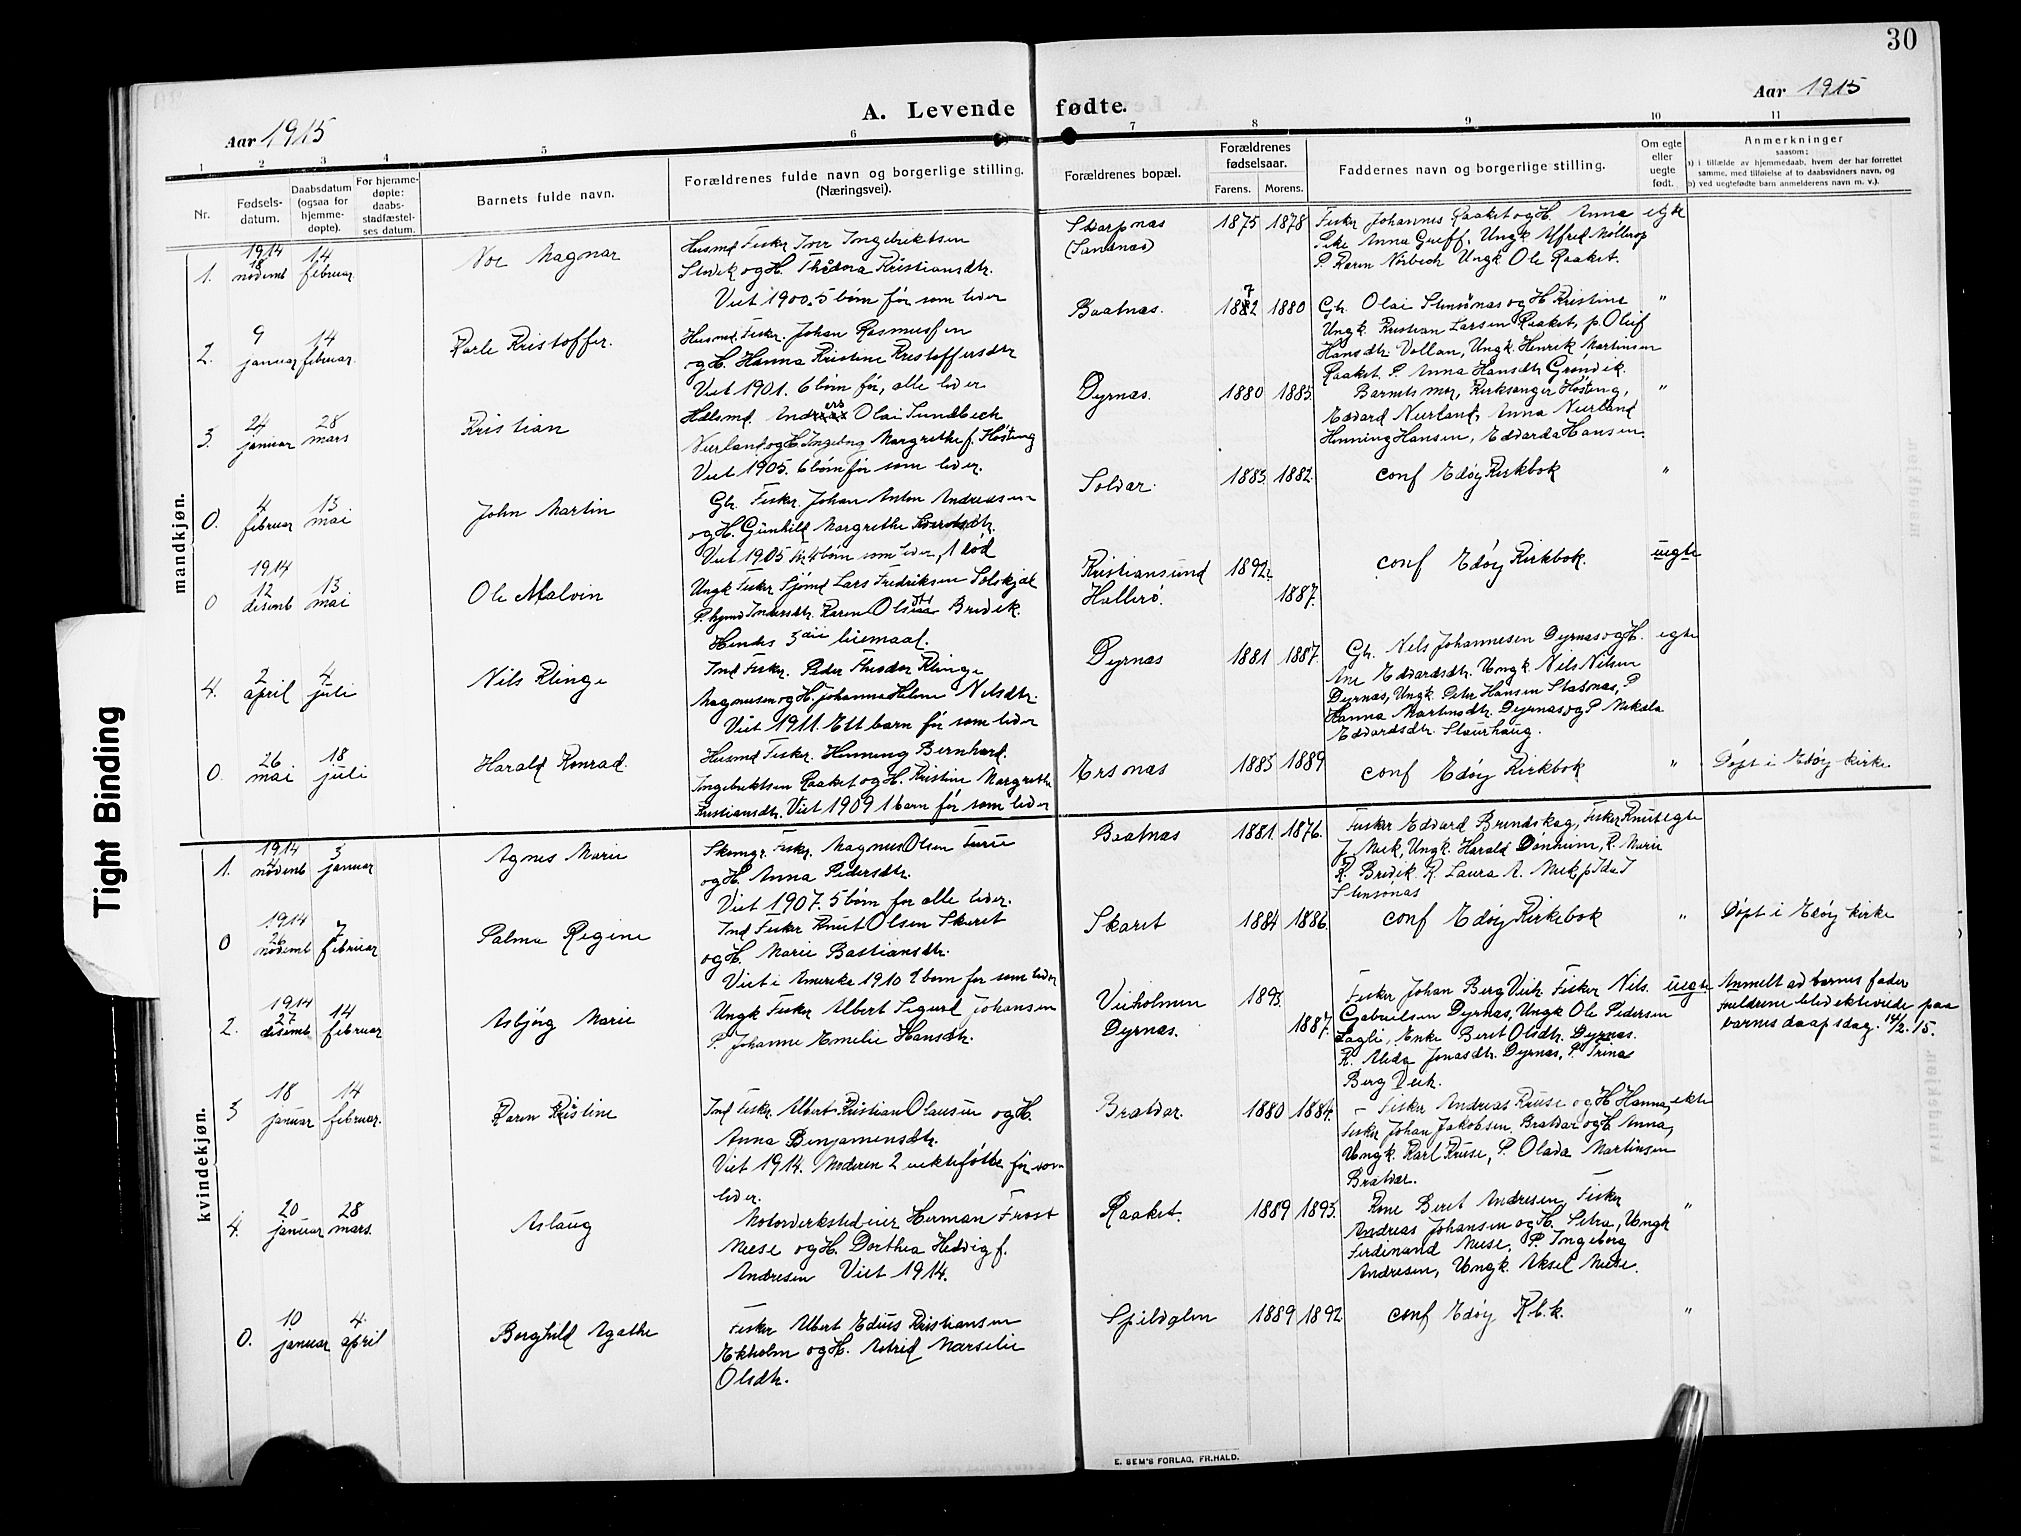 30
Aar 1915
A. Levende fødte.
Aar 1915
1 2 3 4 5 6 7 8 9 10 11
Nr.
Fødsels-
datum.
Daabsdatum
(ogsaa for
hjemme-
døpte).
For hjemme-
døpte:
daabs-
stadfæstel-
ses datum.
Barnets fulde navn.
Forældrenes fulde navn og borgerlige stilling.
(Næringsvei).
Forældrenes bopæl.
Forældrenes
fødselsaar.
Farens. Morens.
Faddernes navn og borgerlige stilling.
Om egte
eller
uegte
født.
Anmerkninger
saasom:
a) i tilfælde av hjemmedaab, hvem der har forrettet
samme, med tilføielse af to daabsvidners navn, og
b) ved uegtefødte barn anmelderens navn m. v.).
mandkjøn.
1. 1914 18 novemb 14 februar
Magnar
Husmd Fisker Iver Ingebriktsen
og H. Kristiansdtr.
Viet 1900. 5 børn før som lever
Skarpnas
(Sandnas)
1875 1878
Fisker Johannes Raaket og H. Anna
Pike Anna Greff. Ungk Alfred Møllerop
P. Karen Norbech Ungk Ole Raaket.
egte
2. 9 januar 14 februar.
Karle Kristoffer.
Husmd. Fisker. Johan Rasmussen
og H. Hanna Kristine Kristoffersdtr
Viet 1901. 6 børn før, alle lever
Baatnas. 1872 1880
Gbr. Olai Stensønas og H Kristine
Ungk. Kristian Larsen Raaket, p. Oluf
Hansdtr Vollan, Ungk. Henrik Martinsen
Raaket. P. Anna Hansdtr Grønvik.
"
3. 24 januar 28 mars
Kristian
Anders Olai Sundbech
Neerland og H Ingeborg Margrethe f. Høsteng
Viet 1905. 6 børn før som lever.
Dyrnas. 1880 1885
Barnets mor, Kirksanger Høsteng,
Edvard Neerland, Anna Neerland
Henning Hansen, Edvarda Hansen.
"
0. 4 februar 13 mai
John Martin
Gbr. Fisker. Johan Anton Andreassen
og H. Gunhild Margrethe
Viet 1905 4 børn som lever, 1 død
Soldar. 1883 1882.
conf Edøy Kirkbok
"
0 1914 12 desemb 13 mai
Ole Malvin
Ungk Fisker Sjømd Lars Fredriksen Solskjal
Karen Brevik.
Hendes 3die leiemaal.
Kristiansund
Hallerø.
1892. 1887.
conf Edøy Kirkbok.
uegte
4. 2 april 4 juli
Nils Klinge
Ind Fisker. Peder Theodor Klinge
Magnusen og H. Johanna Helene Nilsdtr.
Viet 1911. Ett barn før som lever
Dyrnas 1881 1887.
Gbr. Nels Johannesen Dyrnas og H.
Ane Edvardsdtr. Ungk. Nils Nilsen
Dyrnas, Ungk. Peter Hansen Stabnas, P
Hanna Martinsdtr. Dyrnas og P. Nekala
Edvardsdtr. Staurhaug.
egte
0. 26 mai 18 juli
Harald Konrad.
Husmd Fisker. Henning Bernhard.
Ingebriktsen Raaket og H. Kristine Margrethe
Kristiansdtr. Viet 1909 1 barn før som lever
Ersnas 1885 1889
conf Edøy Kirkbok
"
Døpt i Edøy kirke
kvindekjøn.
1. 1914 novemb 3 januar
Agnes Marie
Fisker. Magnus Olsen Turie
og H. Anna Pedersdtr.
Viet 1907. 5 børn for alle lever.
Baatnas 1881. 1876.
Fisker Edvard Brendskag, Fisker Knut
J. Meek, Ungk. Harald Dønheim, P. Marie
K. Brevik. K. Laura A. Meek p Ida I
Stensønas
egte
0 1914. 26 novemb 7 februar
Palma Regine
Ind Fisker Knut Olsen Skaret
og H. Marie Bastiansdtr.
Viet i Amerika 1910 børn før som lever
Skaret 1884 1886.
conf Edøy Kirkebok
"
Døpt i Edøy kirke
2. 1914 27 desemb 14 februar
Asbjørg Marie
Ungk Fisker Albert Sigurd Johansen
P. Johanne Emelie Hansdtr.
Veiholmen
Dyrnas.
1893. 1887.
Fisker Johan Berg Veih. Fisker Nils.
Gabrielsen Dyrnas, Ungk Ole Pedersen
Lagli, Enke Beret Olsdtr. Dyrnas.
K. Aleda Jonasdtr. Dyrnas, P. Trina
Berg Veik.
uegte
Anmelt av barnes fader
foreldrene blev ektevide paa
barnes daapsdag. 14/2. 15.
3 18 januar 14 februar.
Karen Kristine
Ind Fisker Albert Kristian Olausen og H.
Anna Benjamensdtr.
Viet 1914. Moderen 2 uektefødte før som
lever.
Bratvar. 1880 1884.
Fisker Andreas Kruse og H Hanna,
Fisker Johan Jakobsen, Bratvar og H Anna,
Ungk. Karl Kruse, P. Olava Martinsen
Bratvar.
ekte
4. 20 januar 28 mars.
Aslaug
Motorverkstedeier Herman Frost
Meese og H. Dorthea Hedvig f.
Andresen Viet 1914.
Raaket. 1889 1893.
Kone Beret Andresen, Fisker
Andreas Johansen og H. Petra, Ungk
Ferdinand Meese, P. Ingeborg
Andresen, Ungk. Aksel Meese.
"
0. 10 januar 4. april
Borghild Agathe
Fisker Albert Edius Kristiansen
Ekholm og H. Astrid Marselie
Olsdtr.
1889 1892
conf Edøy K.b.k.
"
E. SEM'S FORLAG, FR.HALD.
Tight Binding